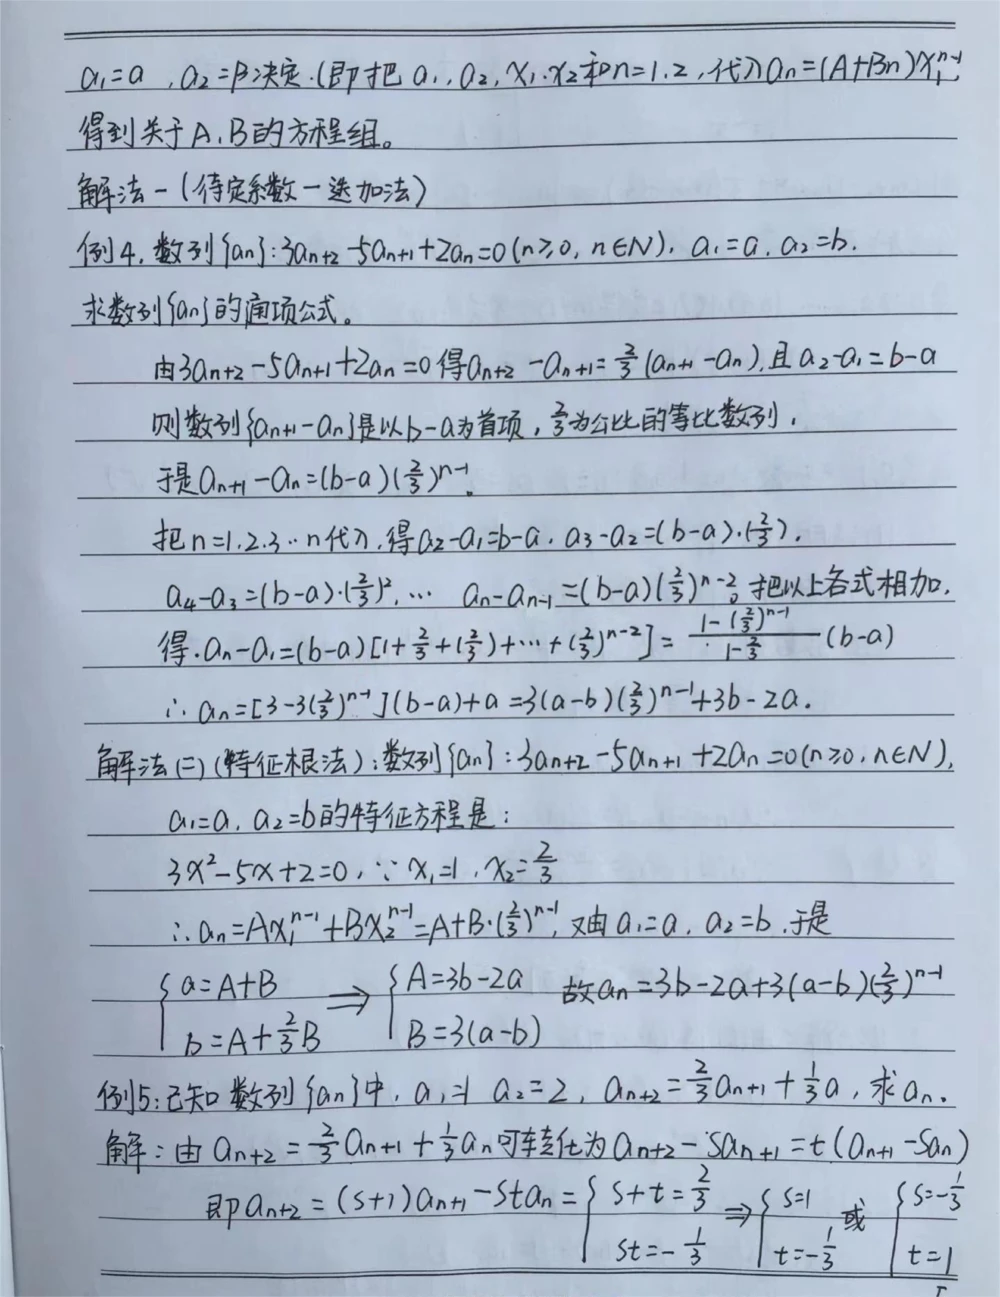 a₁=a，a₂=β决定.(即把a₁,a₂,x₁,x₂和n=1.2,代入aₙ=(A+Bn)x₁ⁿ⁻¹,
得到关于A,B的方程组。
解法一(待定系数一迭加法)
例4,数列{aₙ}:3aₙ₊₂-5aₙ₊₁+2aₙ=0(n≥0,n∈N), a₁=a, a₂=b.
求数列{aₙ}的通项公式。
由3aₙ₊₂-5aₙ₊₁+2aₙ=0得aₙ₊₂-aₙ₊₁=2/3(aₙ₊₁-aₙ),且a₂-a₁=b-a
则数列{aₙ₊₁-aₙ}是以b-a为首项,2/3为公比的等比数列,
于是aₙ₊₁-aₙ=(b-a)(2/3)ⁿ⁻¹。
把n=1.2.3…n代入,得a₂-a₁=b-a, a₃-a₂=(b-a)·(2/3),
a₄-a₃=(b-a)·(2/3)²,… aₙ-aₙ₋₁=(b-a)(2/3)ⁿ⁻²。把以上各式相加,
得.aₙ-a₁=(b-a)[1+2/3+(2/3)+…+(2/3)ⁿ⁻²]=(1-(2/3)ⁿ⁻¹)/(1-2/3)(b-a)
∴aₙ=[3-3(2/3)ⁿ⁻¹](b-a)+a=3(a-b)(2/3)ⁿ⁻¹+3b-2a.
解法(二)(特征根法):数列{aₙ}:3aₙ₊₂-5aₙ₊₁+2aₙ=0(n≥0,n∈N),
a₁=a, a₂=b的特征方程是:
3x²-5x+2=0,∵x₁=1,x₂=2/3
∴aₙ=Ax₁ⁿ⁻¹+Bx₂ⁿ⁻¹=A+B·(2/3)ⁿ⁻¹,又由a₁=a, a₂=b,于是
{a=A+B ⇒ {A=3b-2a 故aₙ=3b-2a+3(a-b)(2/3)ⁿ⁻¹
b=A+2/3B B=3(a-b)
例5:已知数列{aₙ}中,a₁=1 a₂=2, aₙ₊₂=2/3aₙ₊₁+1/3a,求aₙ.
解:由aₙ₊₂=2/3aₙ₊₁+1/3aₙ可转化为aₙ₊₂-Saₙ₊₁=t(aₙ₊₁-Saₙ)
即aₙ₊₂=(s+1)aₙ₊₁-staₙ={s+t=2/3 ⇒ {s=1 或 {s=-1/3
st=-1/3 t=-1/3 t=1